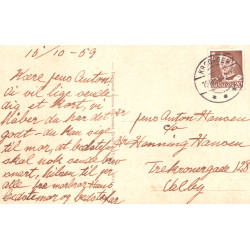 15/10-59
Kære Jens Anton.
vi vil lige sende
dig et kort, vi
håber du har det
godt - du kan sige
til mor, at bedstefar
skal nok sende brev
snart, hilsen til jer
alle fra morbror Hans
bedstemor og bedstefar
Jens Anton Hansen
c/o
Hr Henning Hansen
Trekronergade 128
Valby